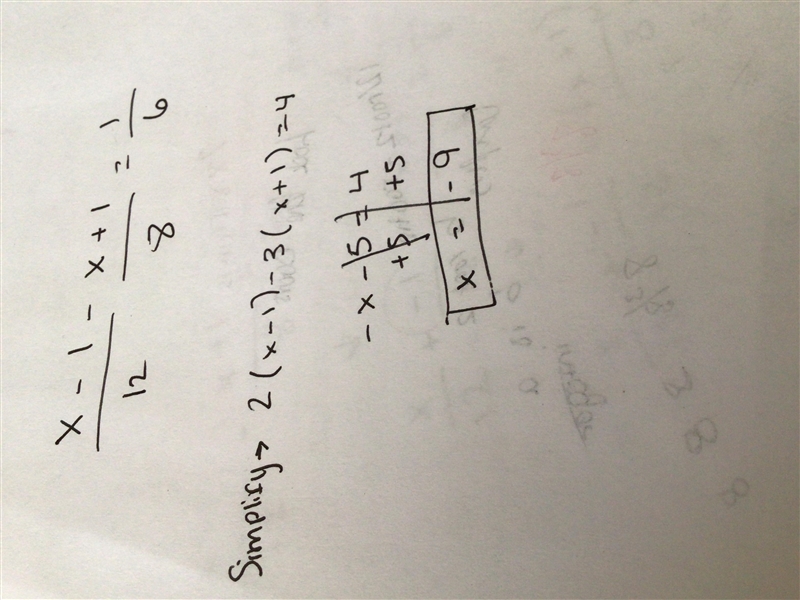 x - 1 / 12 - x + 1 / 8 = 1 / 6
Simplify → 2 (x - 1) - 3 (x + 1) = 4
-x - 5 = 4
+5 +5
x = -9